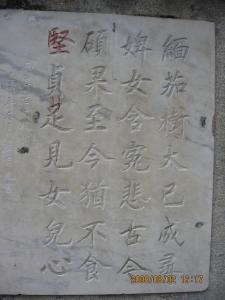 緬茄樹大已成尋
婢女含冤悲古今
碩果至今猶不食
堅貞足見女兒心